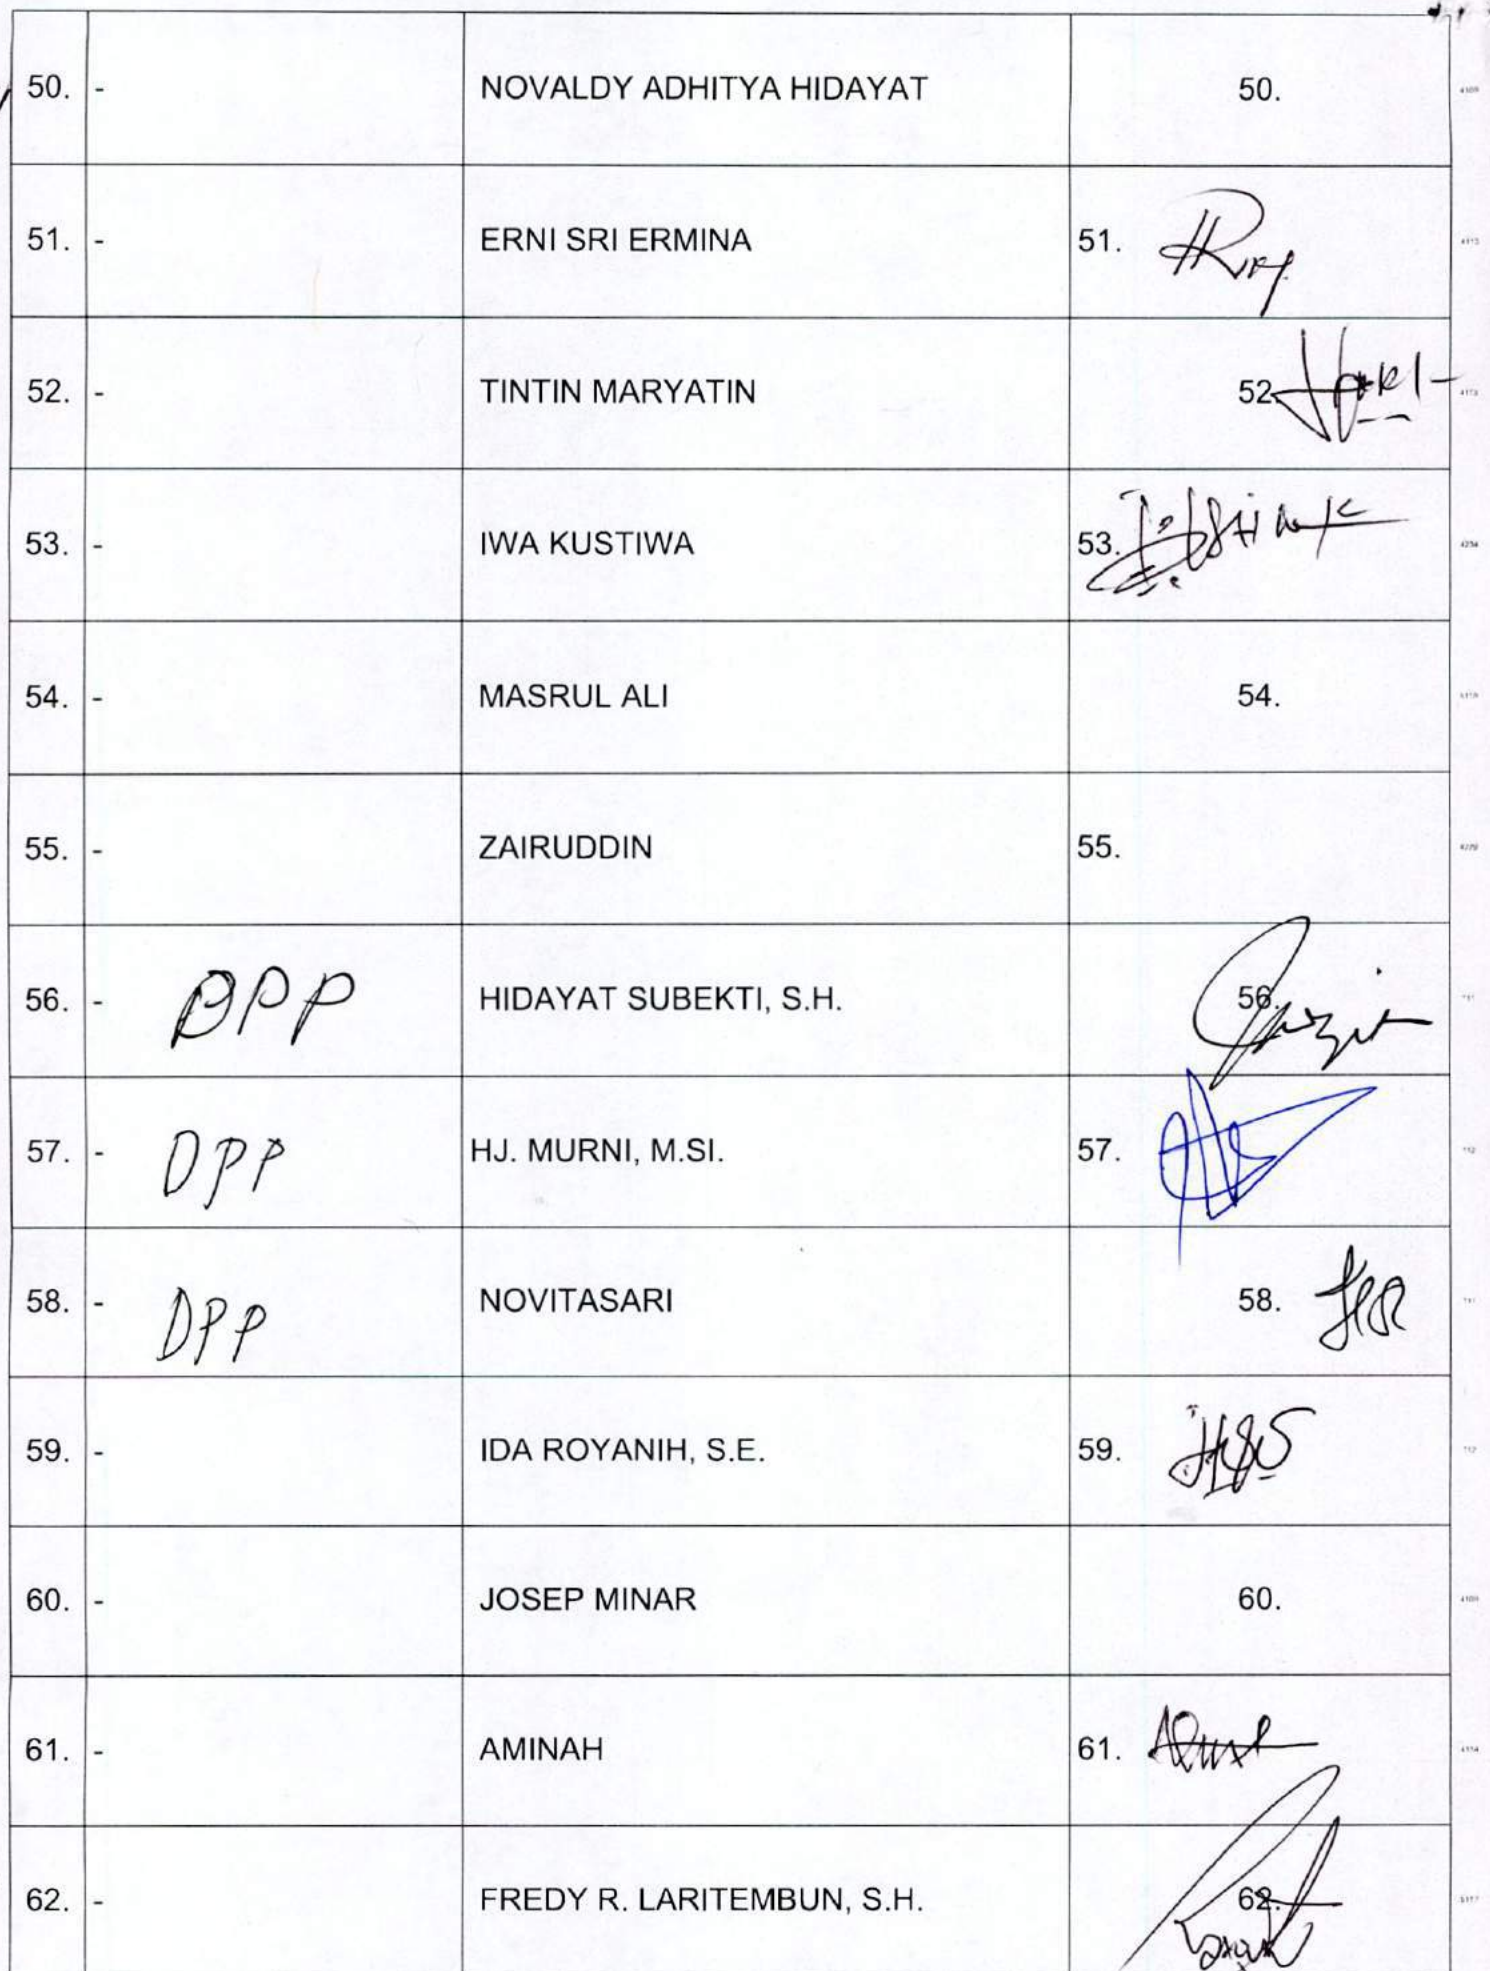 50. - NOVALDY ADHITYA HIDAYAT 50.
51. - ERNI SRI ERMINA 51.
52. - TINTIN MARYATIN 52.
53. - IWA KUSTIWA 53.
54. - MASRUL ALI 54.
55. - ZAIRUDDIN 55.
56. - DPP HIDAYAT SUBEKTI, S.H. 56.
57. - DPP HJ. MURNI, M.SI. 57.
58. - DPP NOVITASARI 58.
59. - IDA ROYANIH, S.E. 59.
60. - JOSEP MINAR 60.
61. - AMINAH 61.
62. - FREDY R. LARITEMBUN, S.H. 62.